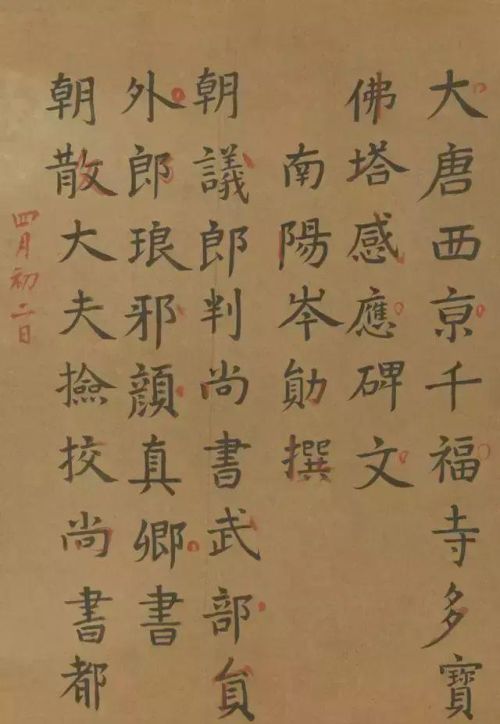 大唐西京千福寺多寶
佛塔感應碑文
南陽岑勛撰
朝議郎判尚書武部員
外郎琅邪顏真卿書
朝散大夫撿挍尚書都
四月初二日